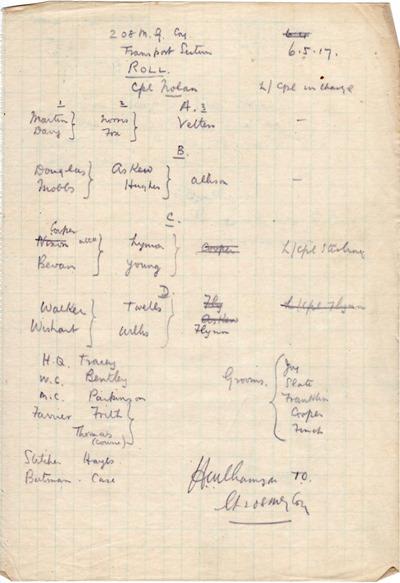 208 M.G. Coy
Transport Section 6.5.17.
ROLL.
Cpl Nolan L/Cpl in charge
1 2 A. 3
Martin Norris Velten –
Davy Fox
B.
Douglas Askew Allison –
Mobbs Hughes
C.
Cooper
Nixon Lyman Cooper L/Cpl Sterling
Bevan Young
D
Walker Twells Fly L/Cpl Flynn
Askew
Wishart Wilks Flynn
H.Q. Tracey
W.C. Bentley
M.C. Parkinson
Farrier Frith
Thomas
Grooms. Joy
Slate
Franklin
Cooper
Finch
Stitcher Hayes
Batman. Case
HWilliamson T.O.
208 MG Coy